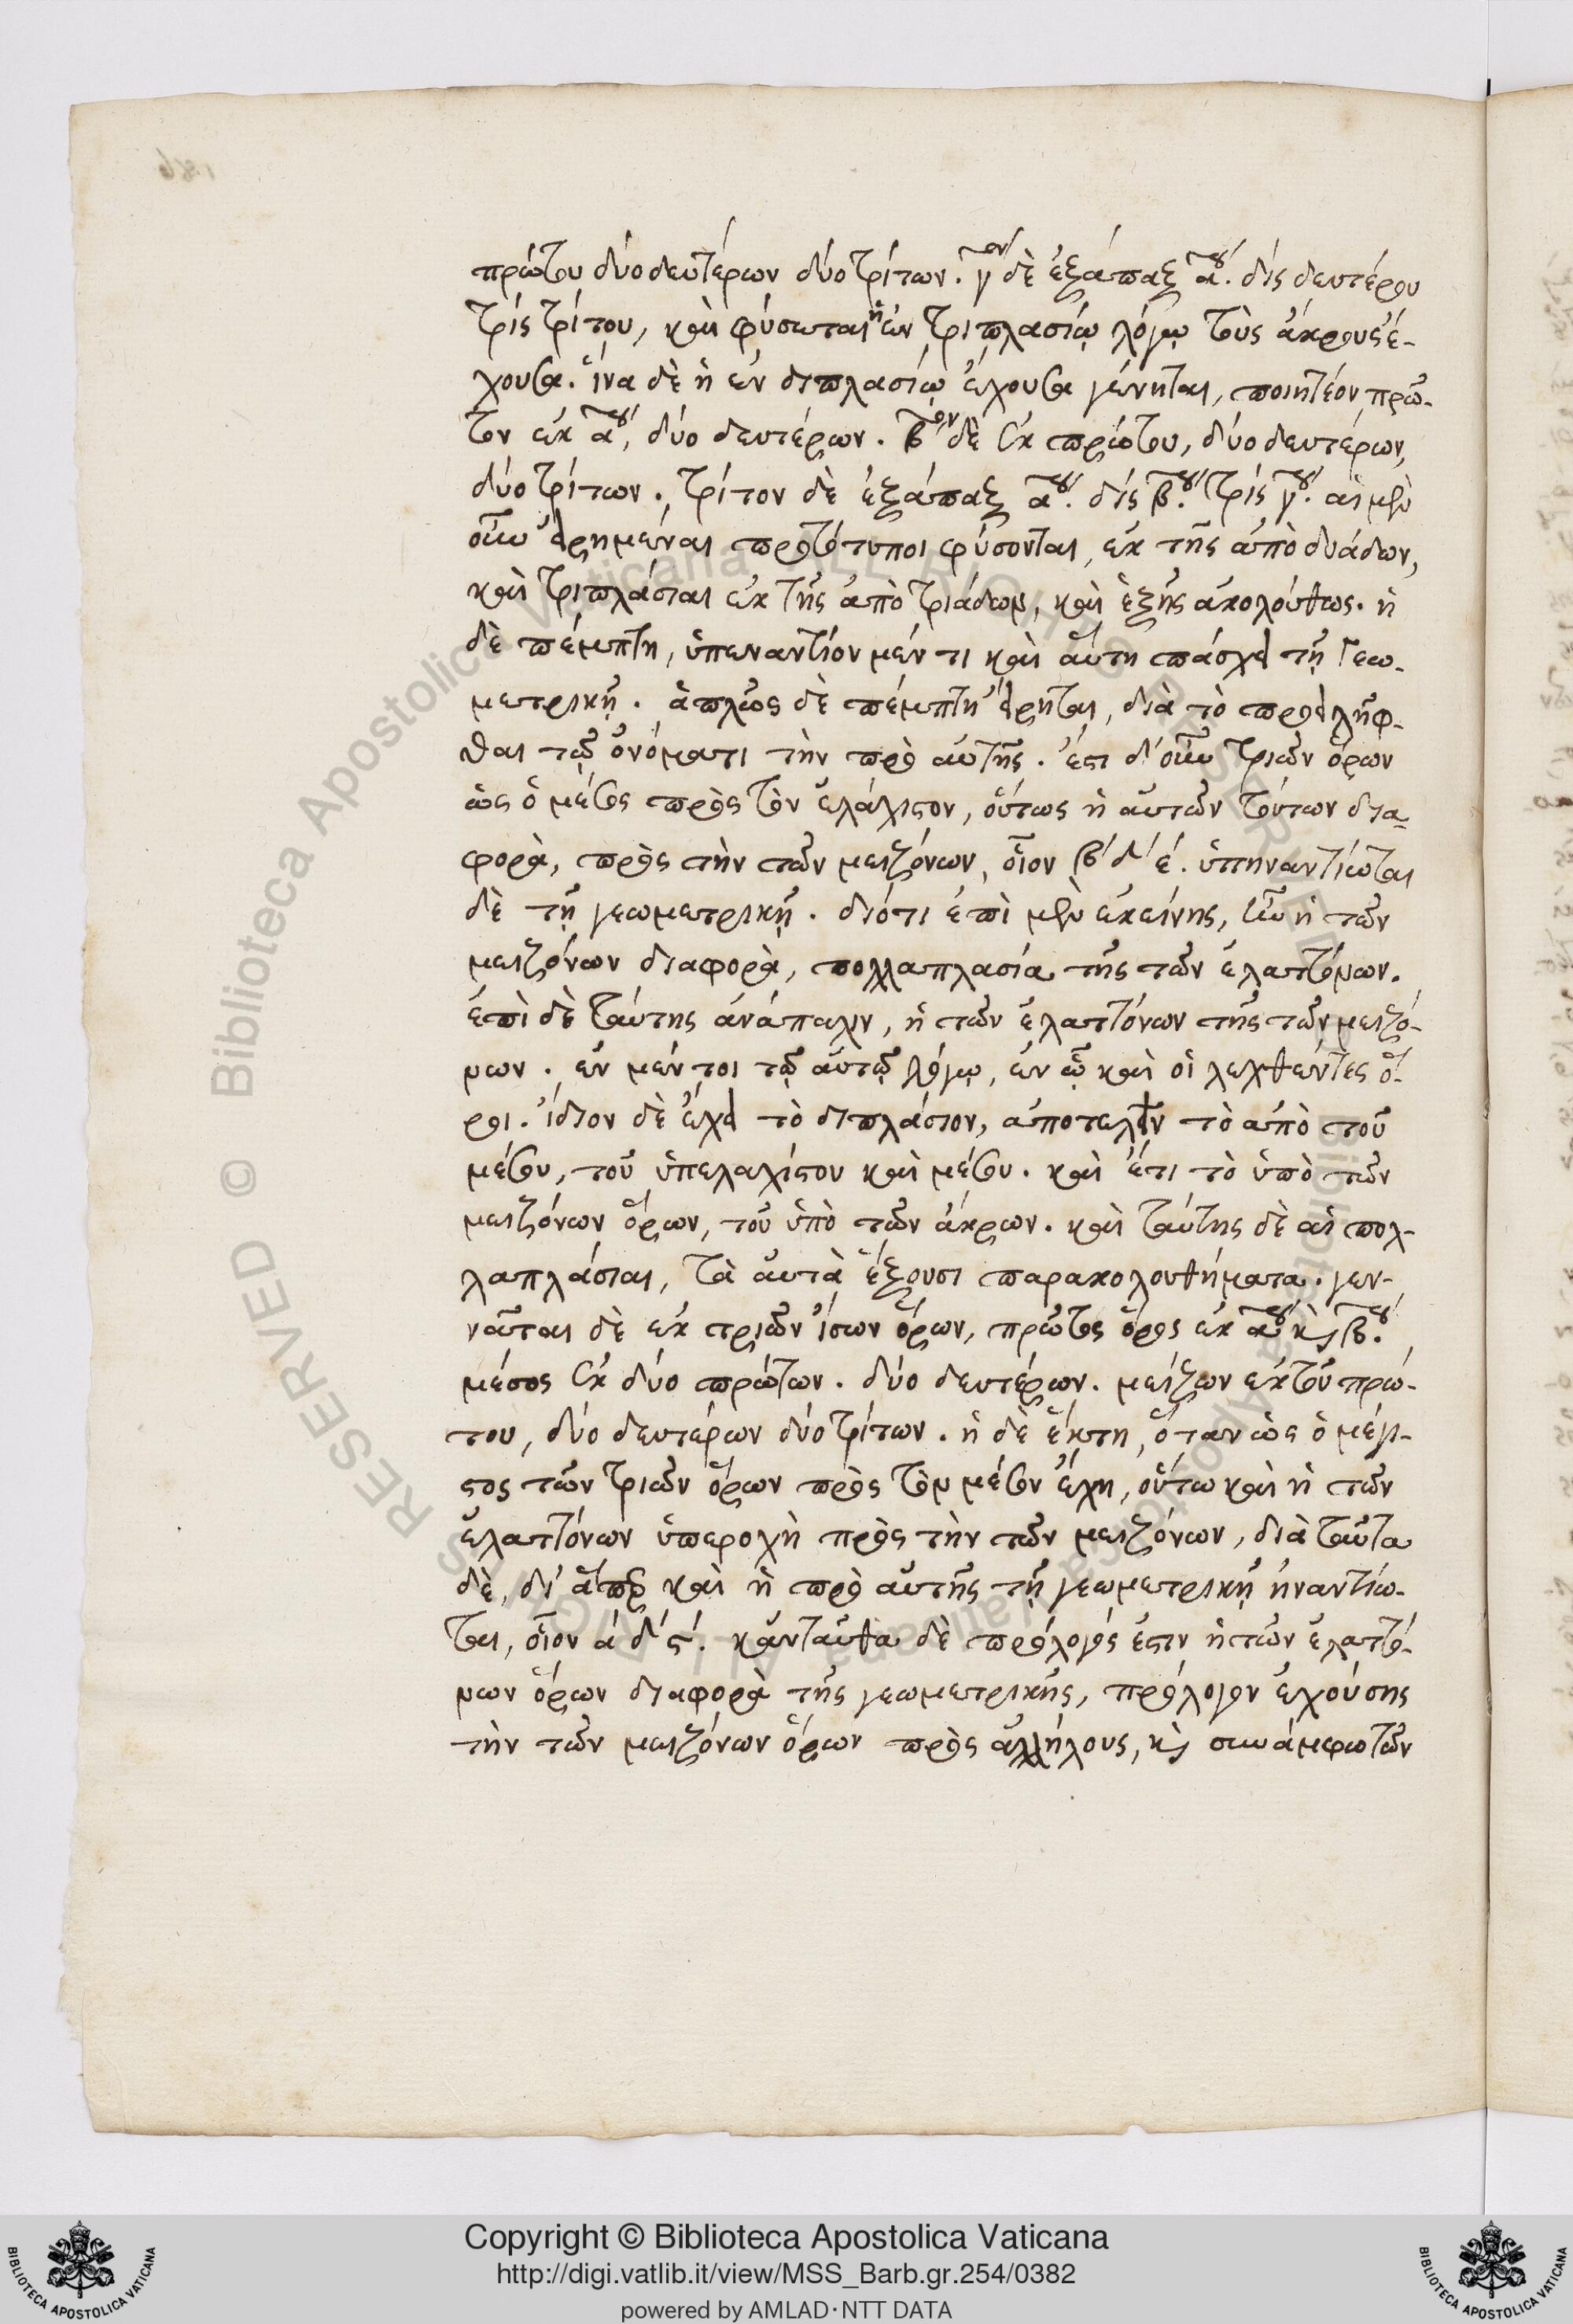 πρώτου δύο δευτέρων δύο τρίτων. γον δὲ ἑξάπαξ αου. δὶς δευτέρου
τρὶς τρίτου, καὶ φύσωται ἡ ἐν τριπλασίῳ λόγῳ τοὺς ἄκρους ἔ-
χουσα. ἵνα δὲ ἡ ἐν διπλασίῳ ἔχουσα γένηται, ποιητέον πρῶ-
τον ἐκ αου, δύο δευτέρων. βον δὲ ἐκ πρώτου, δύο δευτέρων,
δύο τρίτων. τρίτον δὲ ἑξάπαξ αου. δὶς βου. τρὶς γου. αἱ μὲν
οὖν εἰρημέναι πρωτότυποι φύσονται, ἐκ τῆς ἀπὸ δυάδων,
καὶ τριπλάσιαι ἐκ τῆς ἀπὸ τριάδων, καὶ ἑξῆς ἀκολούθως. ἡ
δὲ πέμπτη, ὑπεναντίον μέν τι καὶ αὕτη πάσχει τῇ Γεω-
μετρικῇ. ἁπλῶς δὲ πέμπτη εἴρηται, διὰ τὸ προειλῆφ-
θαι τῷ ὀνόματι τὴν πρὸ αὐτῆς. ἔστι δ' οὖν τριῶν ὅρων
ὡς ὁ μέσος πρὸς τὸν ἐλάχιστον, οὕτως ἡ αὐτῶν τούτων δια-
φορὰ, πρὸς τὴν τῶν μειζόνων, οἷον β' δ' ε'. ὑπηναντίωται
δὲ τῇ γεωμετρικῇ. διότι ἐπὶ μὲν ἐκείνης, ἦν ἡ τῶν
μειζόνων διαφορὰ, πολλαπλασία τῆς τῶν ἐλαττόνων.
ἐπὶ δὲ ταύτης ἀνάπαλιν, ἡ τῶν ἐλαττόνων τῆς τῶν μειζό-
νων. ἐν μέντοι τῷ αὐτῷ λόγῳ, ἐν ᾧ καὶ οἱ λεχθέντες ὅ-
ροι. ἴδιον δὲ ἔχει τὸ διπλάσιον, ἀποτελεῖν τὸ ἀπὸ τοῦ
μέσου, τοῦ ὑπελαχίστου καὶ μέσου. καὶ ἔτι τὸ ὑπὸ τῶν
μειζόνων ὅρων, τοῦ ὑπὸ τῶν ἄκρων. καὶ ταύτης δὲ αἱ πολ-
λαπλάσιαι, τὰ αὐτὰ ἕξουσι παρακολουθήματα. γεν-
νᾶται δὲ ἐκ τριῶν ἴσων ὅρων, πρῶτος ὅρος ἐκ αου κὶ βου.
μέσος ἐκ δύο πρώτων. δύο δευτέρων. μείζων ἐκ τοῦ πρώ-
του, δύο δευτέρων δύο τρίτων. ἡ δὲ ἕκτη, ὅταν ὡς ὁ μέγι-
στος τῶν τριῶν ὅρων πρὸς τὸν μέσον ἔχη, οὕτω καὶ ἡ τῶν
ἐλαττόνων ὑπεροχὴ πρὸς τὴν τῶν μειζόνων, διὰ ταῦτα
δὲ, δι' ἅπερ καὶ ἡ πρὸ αὐτῆς τῇ γεωμετρικῇ ἠναντίω-
ται, οἷον α' δ' ϛ'. κἀνταῦθα δὲ πρόλογός ἐστιν ἡ τῶν ἐλαττό-
νων ὅρων διαφορὰ τῆς γεωμετρικῆς, πρόλογον ἐχούσης
τὴν τῶν μειζόνων ὅρων πρὸς ἀλλήλους, κὶ συναμφοτῶν
Copyright © Biblioteca Apostolica Vaticana
http://digi.vatlib.it/view/MSS_Barb.gr.254/0382
powered by AMLAD·NTT DATA